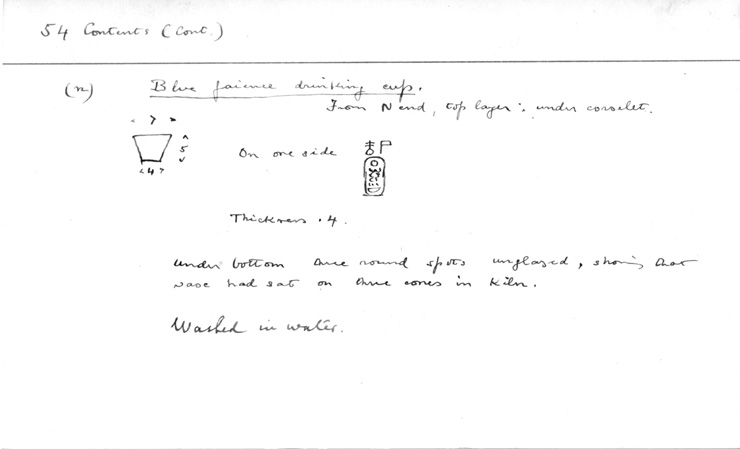 54 Contents (Cont.)
(n) Blue faience drinking cup.
From N end, top layer: under corselet.
7
5
4
On one side
Thickness .4.
Under bottom three round spots unglazed, showing that
vase had sat on three cones in kiln.
Washed in water.